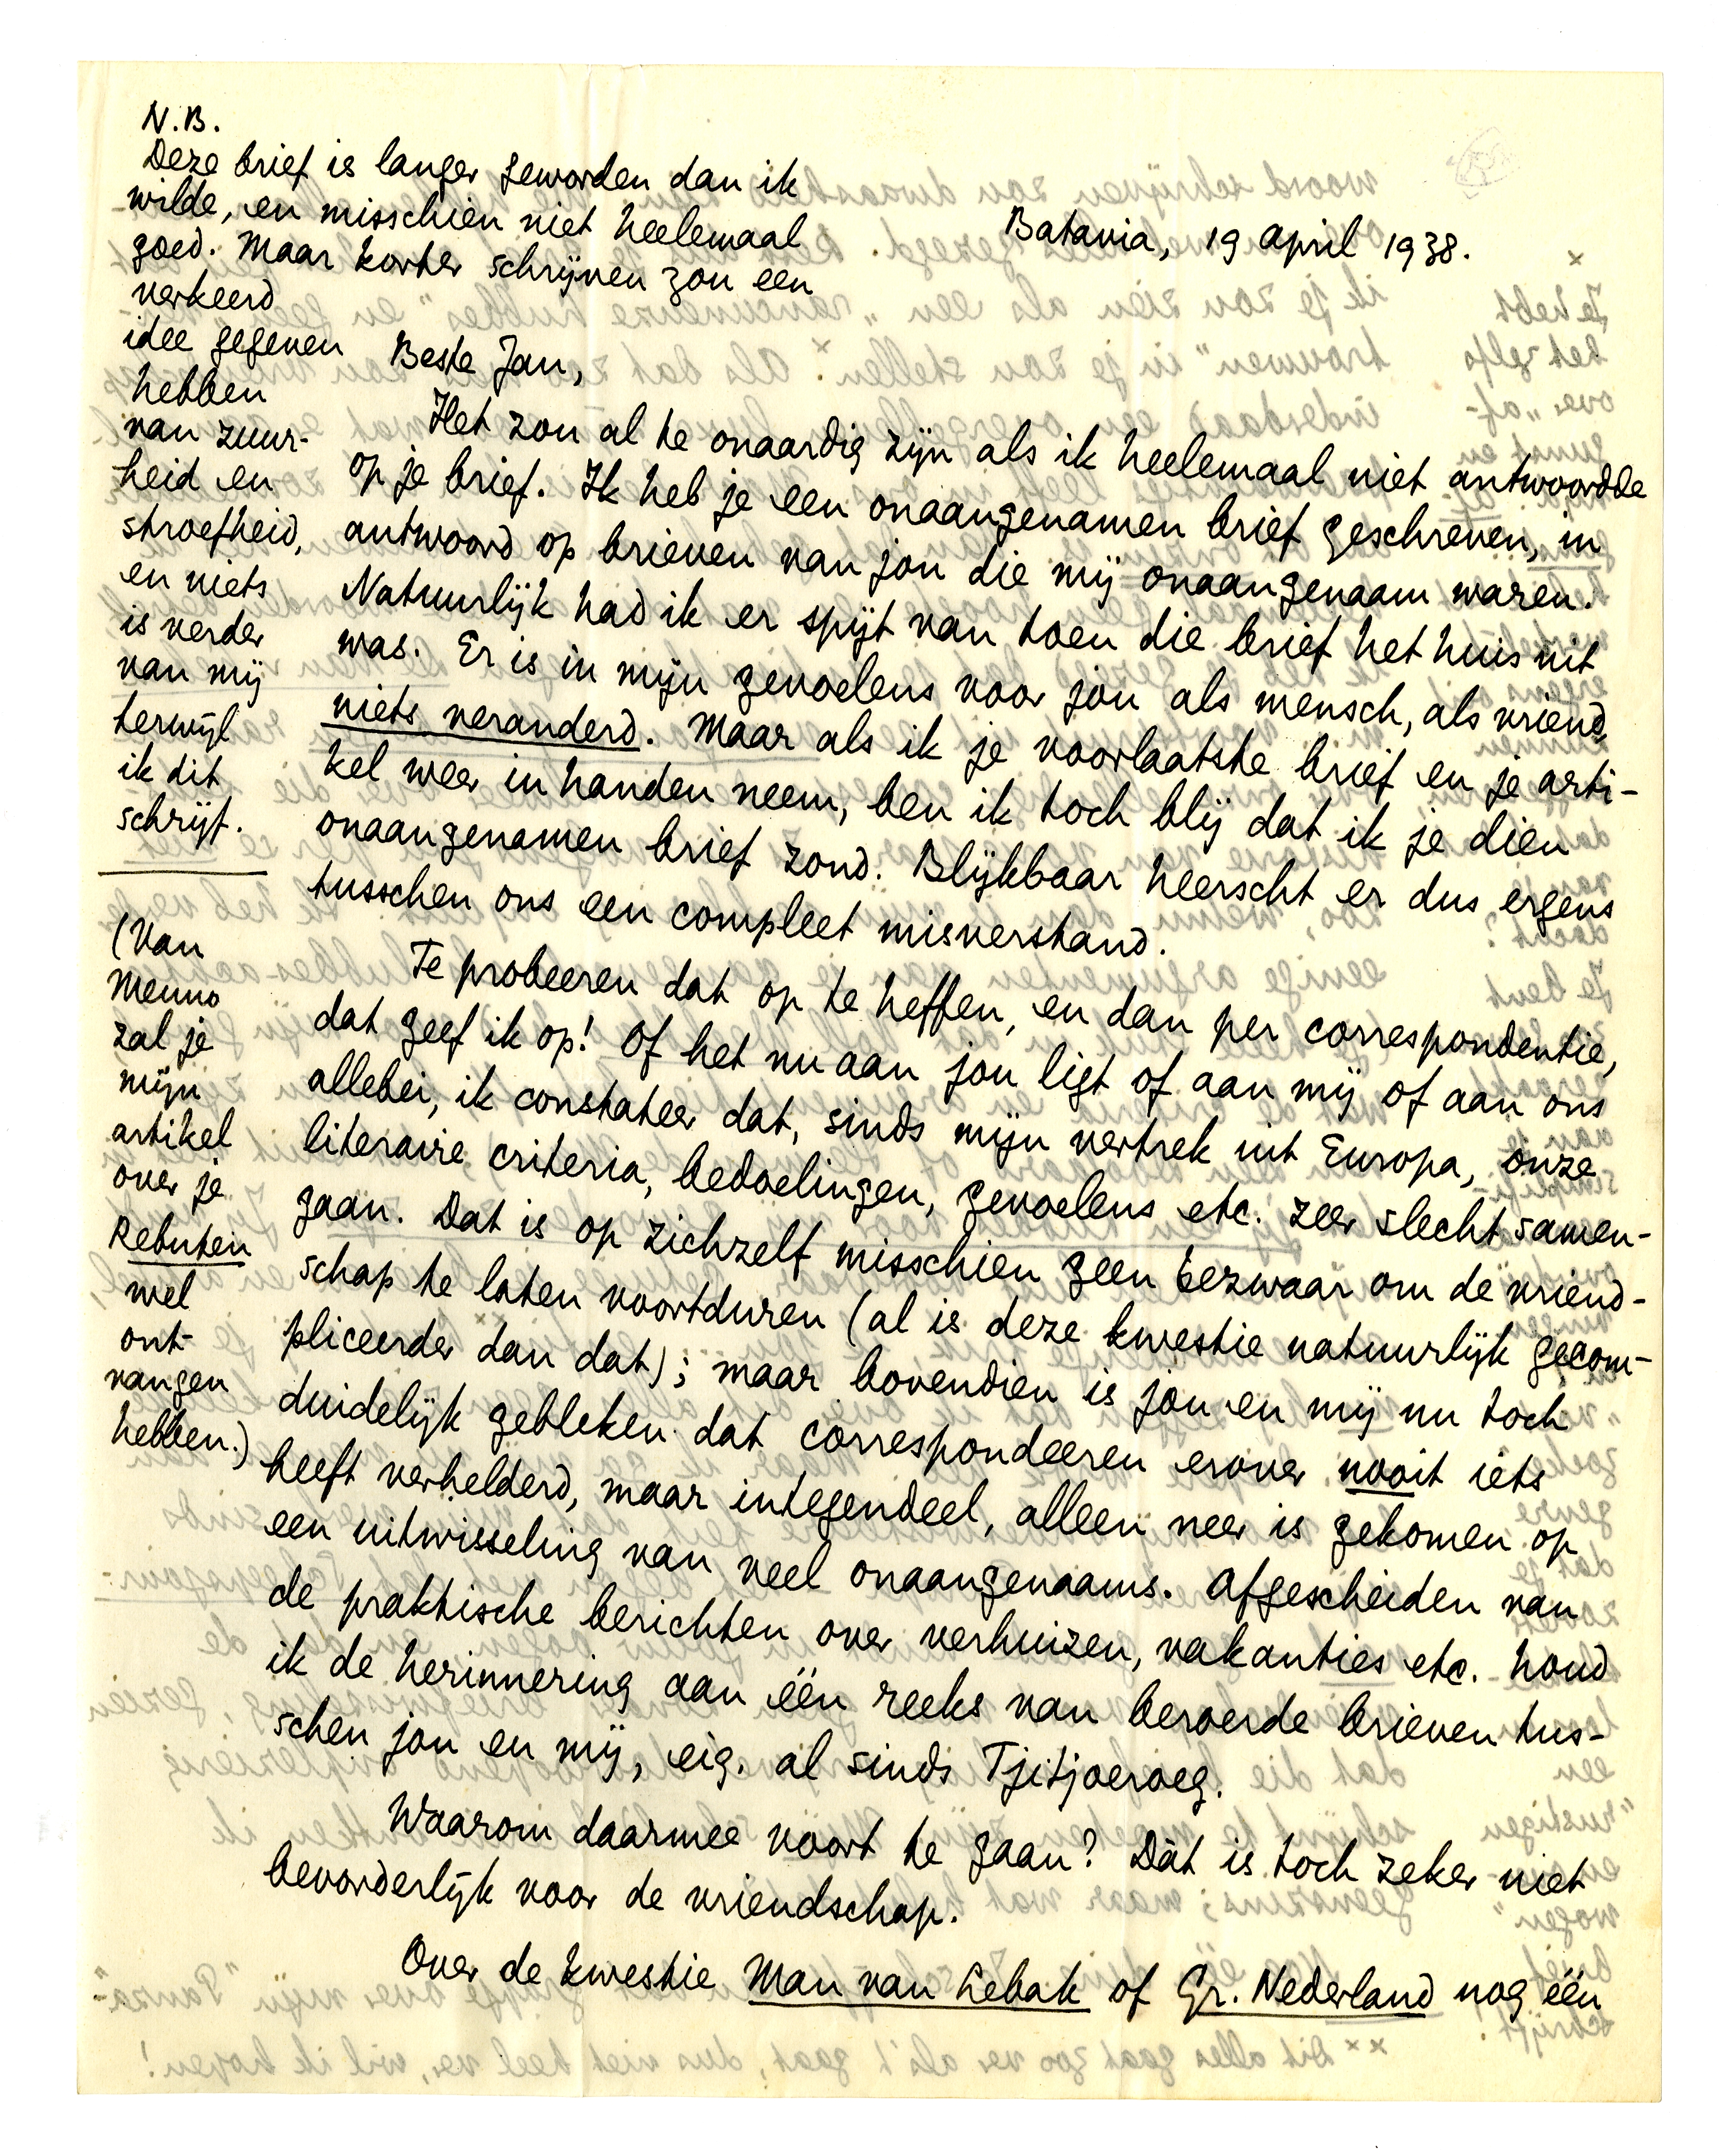 N.B.
Deze brief is langer geworden dan ik
wilde, en misschien niet heelemaal
goed. Maar korter schrijven zou een
verkeerd
idee gegeven
hebben
van zuur-
heid en
stroefheid,
en niets
is verder
van mij
terwijl
ik dit
schrijf.
(Van
Menno
zal je
mijn
artikel
over je
Rebuten
wel
ont-
vangen
hebben.)
Batavia, 19 april 1938.
Beste Jan,
Het zou al te onaardig zijn als ik heelemaal niet antwoordde
op je brief. Ik heb je een onaangenamen brief geschreven, in
antwoord op brieven van jou die mij onaangenaam waren.
Natuurlijk had ik er spijt van toen die brief het huis uit
was. Er is in mijn gevoelens voor jou als mensch, als vriend,
niets veranderd. Maar als ik je voorlaatste brief en je arti-
kel weer in handen neem, ben ik toch blij dat ik je dien
onaangenamen brief zond. Blijkbaar heerscht er dus ergens
tusschen ons een compleet misverstand.
Te probeeren dat op te heffen, en dan per correspondentie,
dat geef ik op! Of het nu aan jou ligt of aan mij of aan ons
allebei, ik constateer dat, sinds mijn vertrek uit Europa, onze
literaire criteria, bedoelingen, gevoelens etc. zeer slecht samen-
gaan. Dat is op zichzelf misschien geen bezwaar om de vriend-
schap te laten voortduren (al is deze kwestie natuurlijk gecom-
pliceerder dan dat); maar bovendien is jou en mij nu toch
duidelijk gebleken dat correspondeeren erover nooit iets
heeft verhelderd, maar integendeel, alleen neer is gekomen op
een uitwisseling van veel onaangenaams. Afgescheiden van
de praktische berichten over verhuizen, vakanties etc. houd
ik de herinnering aan één reeks van beroerde brieven tus-
schen jou en mij, eig. al sinds Tjitjoeroeg.
Waarom daarmee voort te gaan? Dàt is toch zeker niet
bevorderlijk voor de vriendschap.
Over de kwestie Man van Lebak of Gr. Nederland nog één